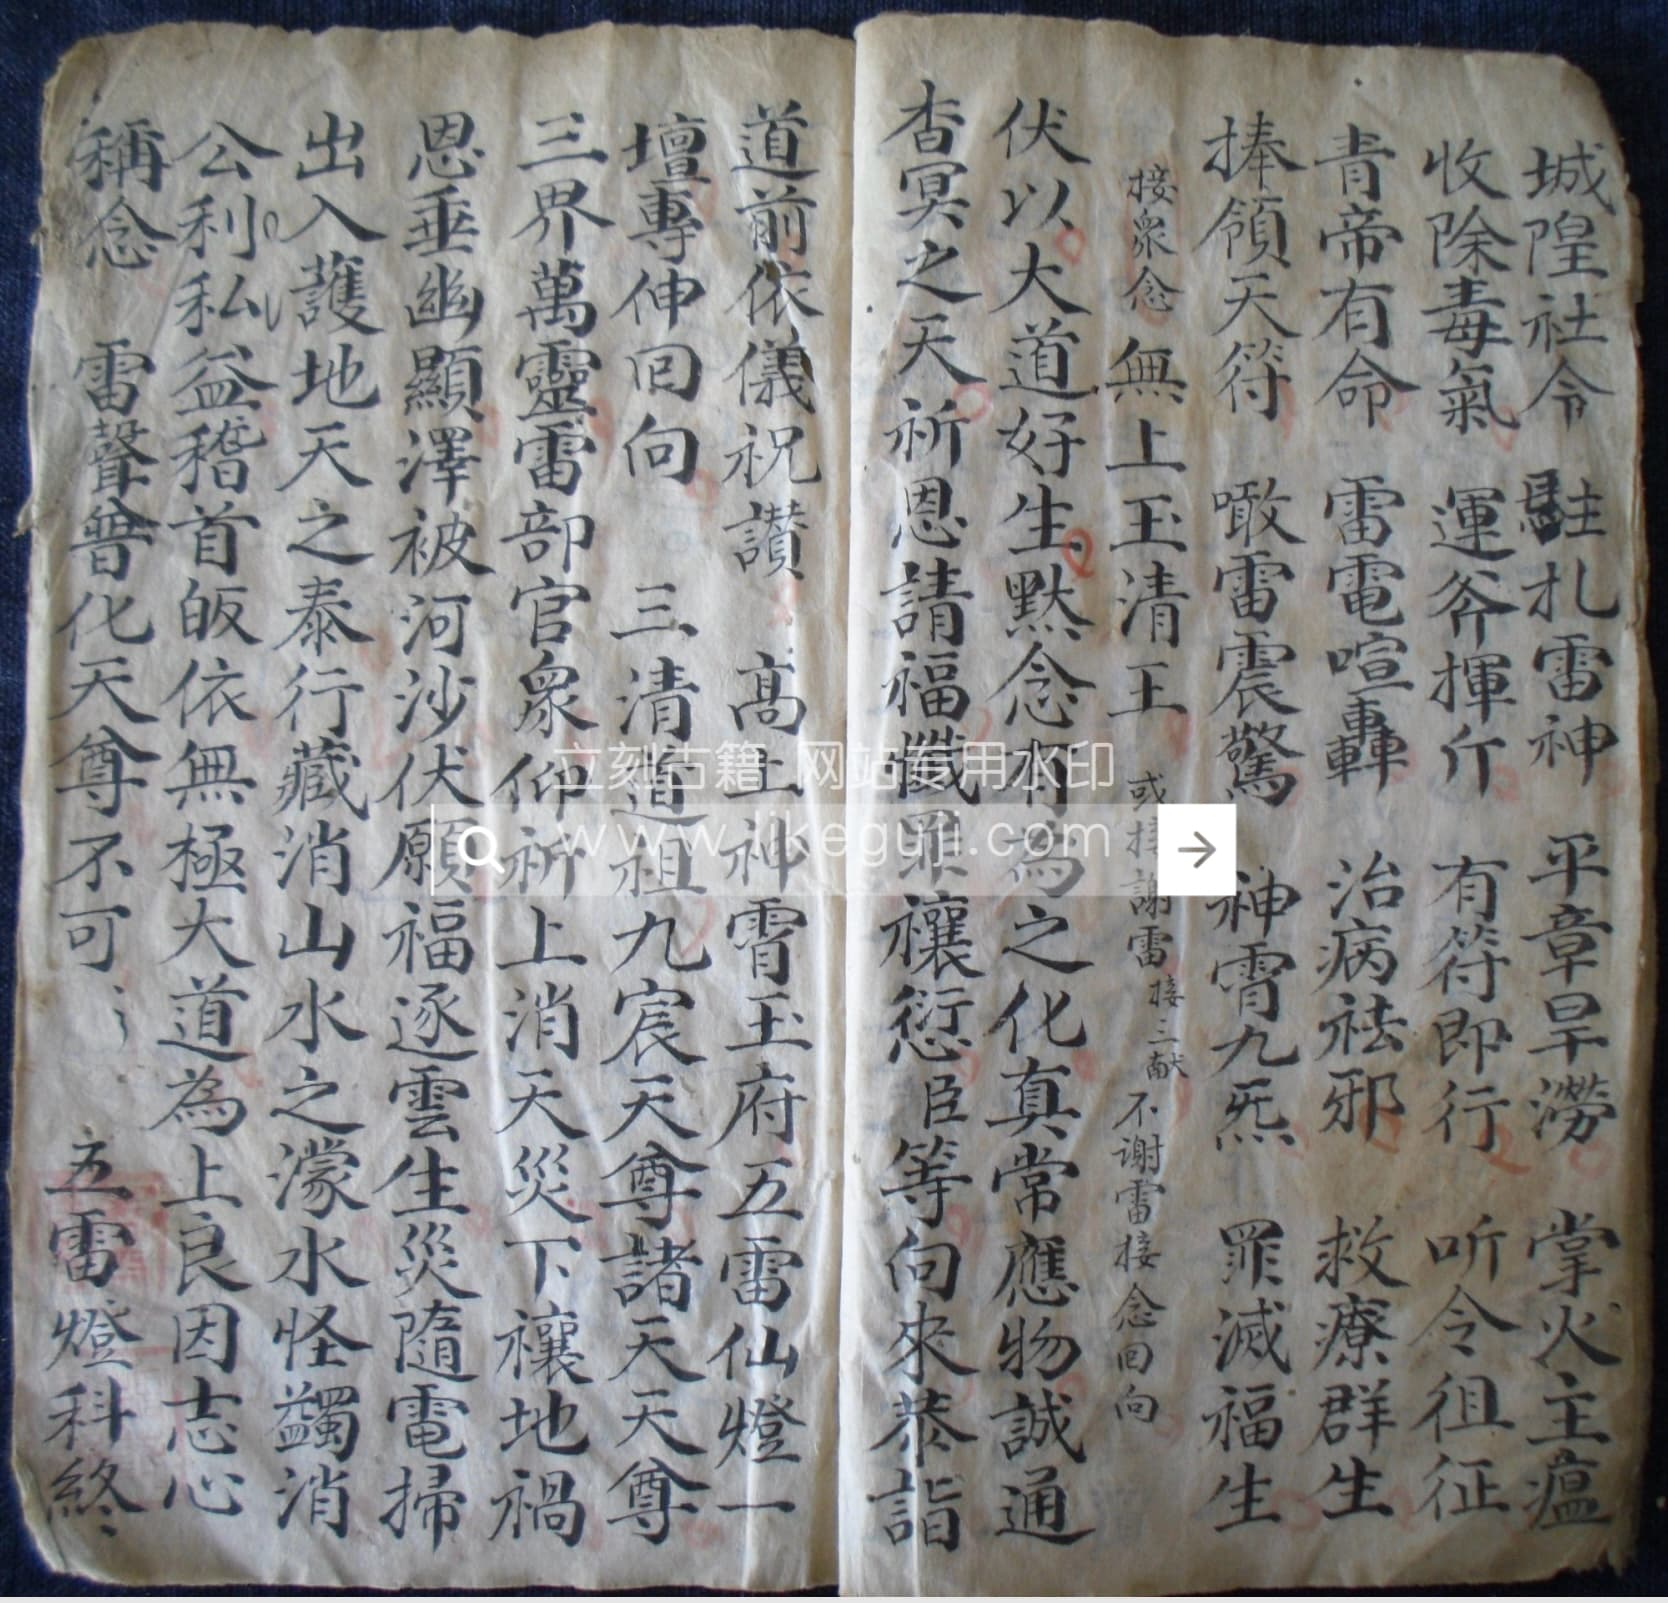 城隍社令 駐扎雷神 平章旱澇 掌火主瘟
收除毒氣 運斧揮斤 有符即行 听令徂征
青帝有命 雷電喧轟 治病祛邪 救療群生
捧領天符 噉雷震驚 神霄九炁 罪滅福生
接衆念 無上玉清王 或接謝雷接三献 不谢雷接念回向
伏以大道好生默念有為之化真常應物誠通
杳冥之天祈恩請福懺罪禳愆臣等向來恭詣
道前依儀祝讃 高上神霄玉府五雷仙燈一
壇專伸回向 三清道祖九宸天尊諸天天尊
三界萬靈雷部官衆仰祈上消天災下禳地禍
恩垂幽顯澤被河沙伏願福逐雲生災隨電掃
出入護地天之泰行藏消山水之濛水怪蠲消
公利私益稽首皈依無極大道為上良因志心
稱念 雷聲普化天尊不可 五雷燈科終
立刻古籍 网站专用水印
www.likeguji.com